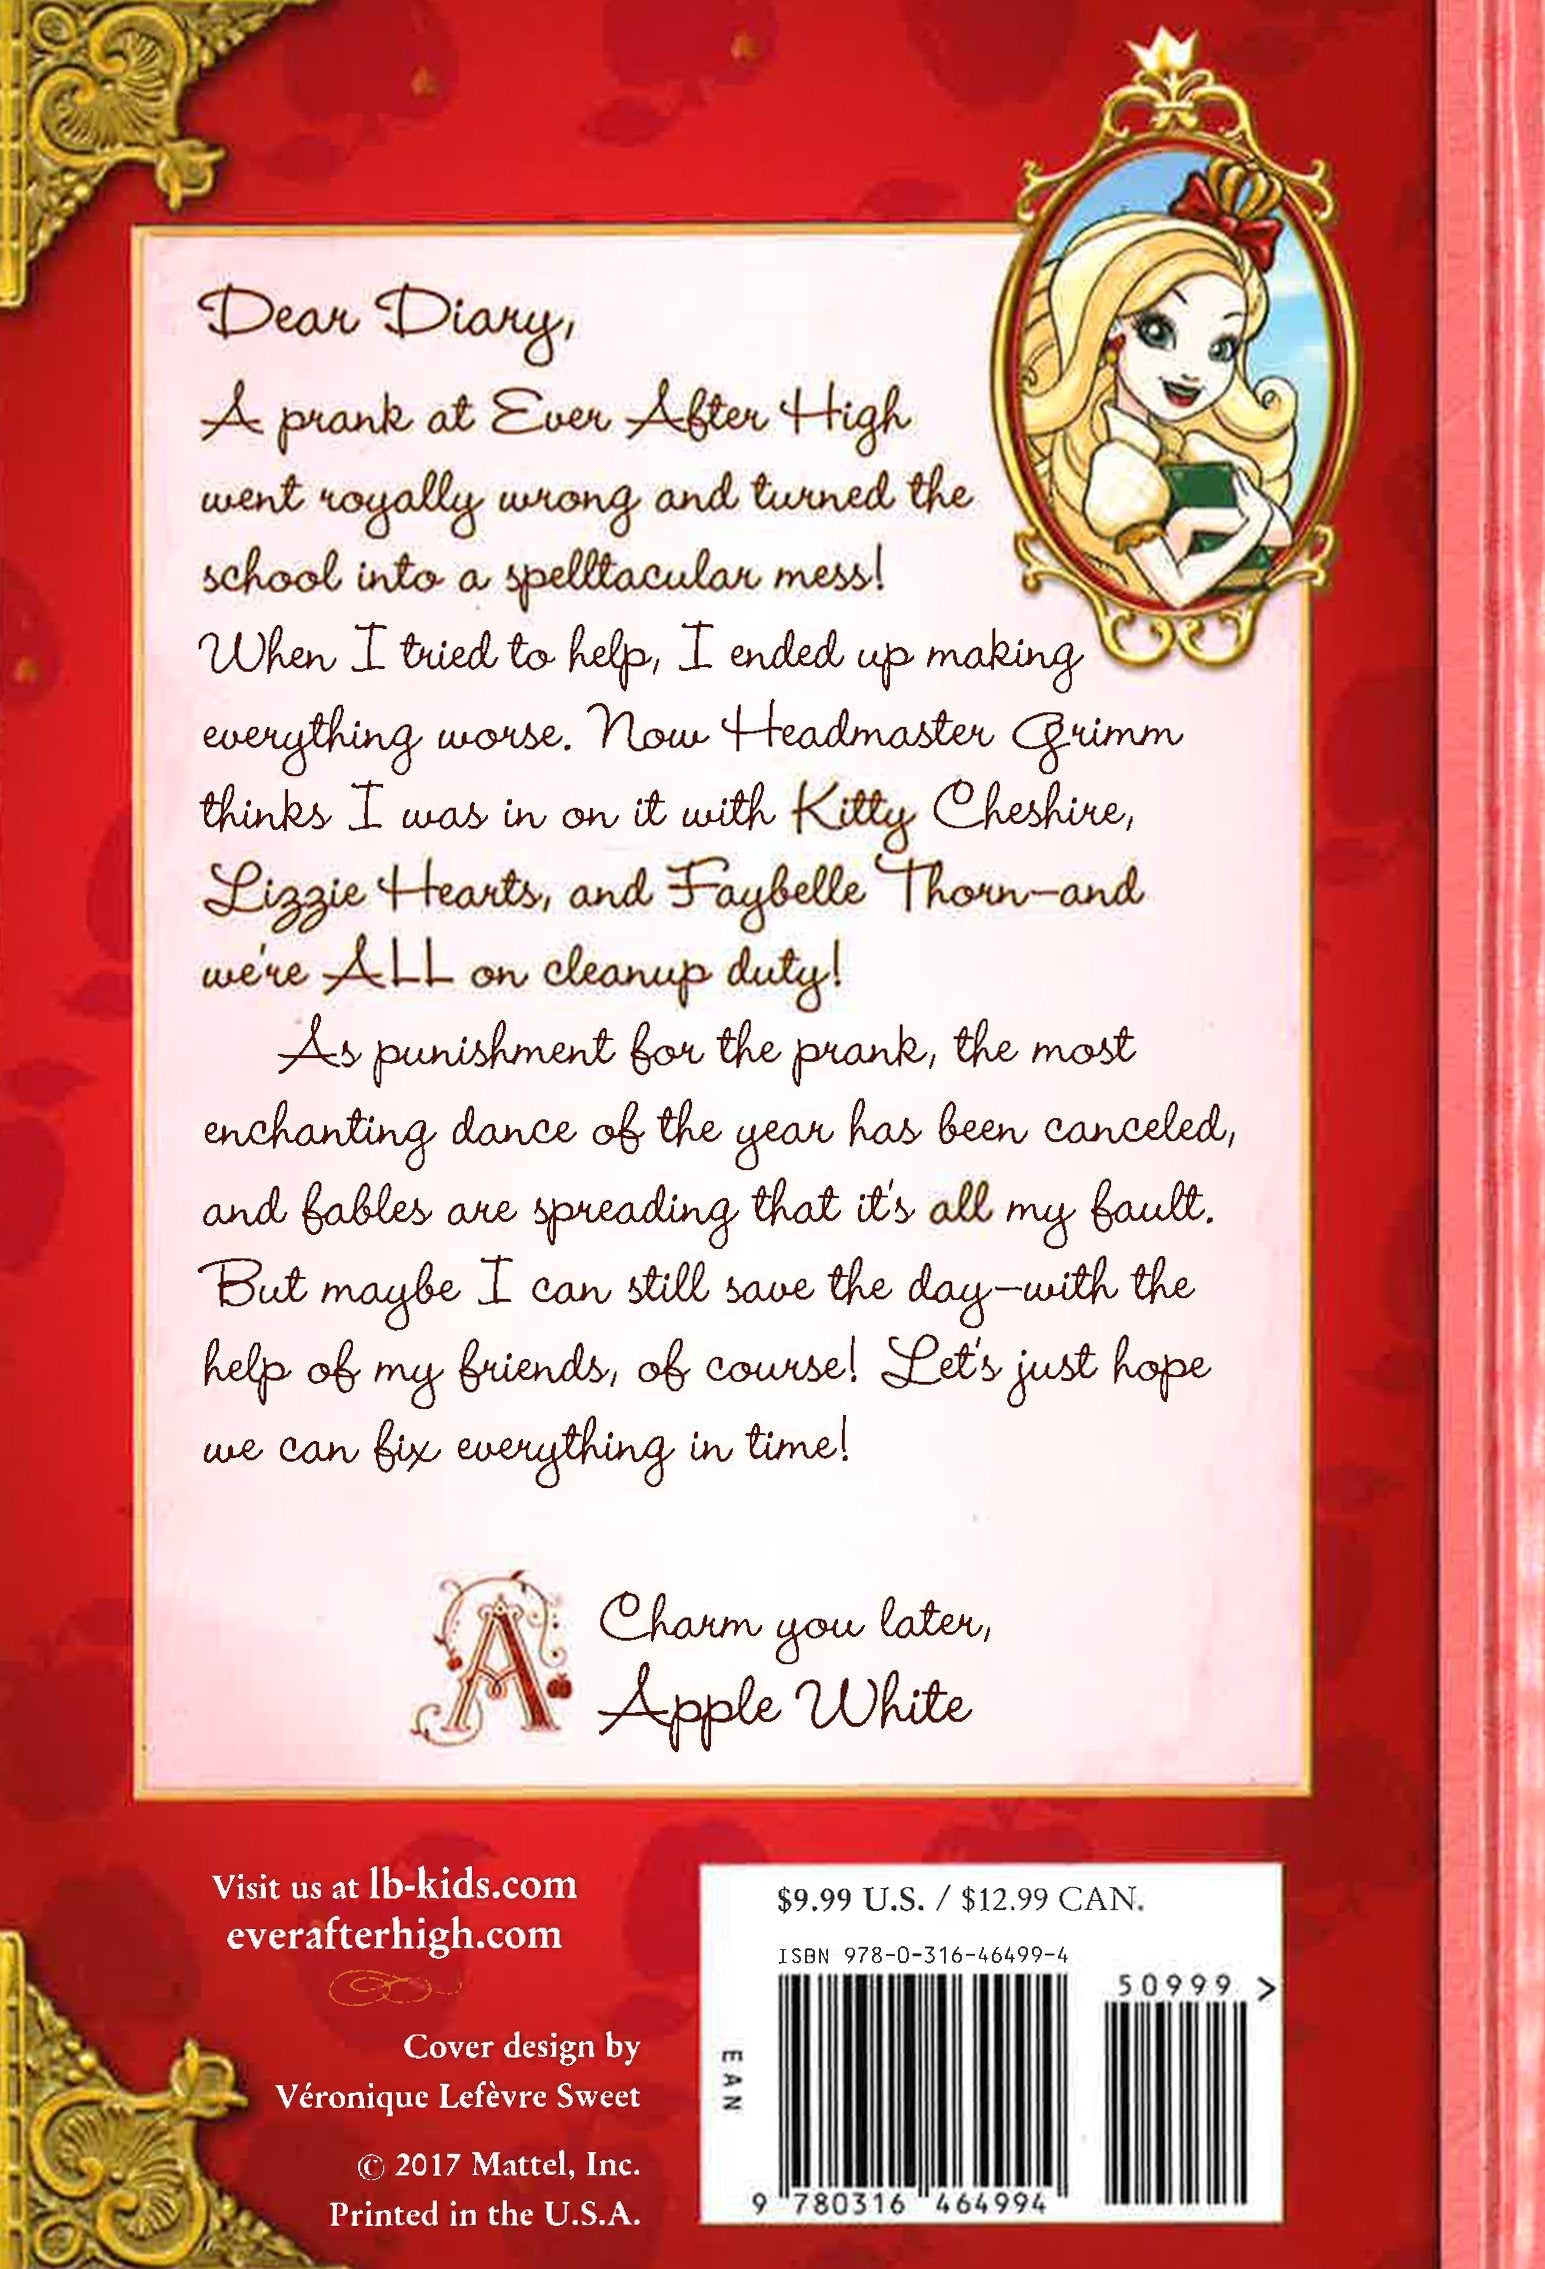 Dear Diary,
A prank at Ever After High
went royally wrong and turned the
school into a spelltacular mess!
When I tried to help, I ended up making
everything worse. Now Headmaster Grimm
thinks I was in on it with Kitty Cheshire,
Lizzie Hearts, and Faybelle Thorn—and
we're ALL on cleanup duty!
As punishment for the prank, the most
enchanting dance of the year has been canceled,
and fables are spreading that it's all my fault.
But maybe I can still save the day—with the
help of my friends, of course! Let's just hope
we can fix everything in time!
A
Charm you later,
Apple White
Visit us at lb-kids.com
everafterhigh.com
Cover design by
Véronique Lefèvre Sweet
© 2017 Mattel, Inc.
Printed in the U.S.A.
$9.99 U.S. / $12.99 CAN.
ISBN 978-0-316-46499-4
50999 >
EAN
9 780316 464994